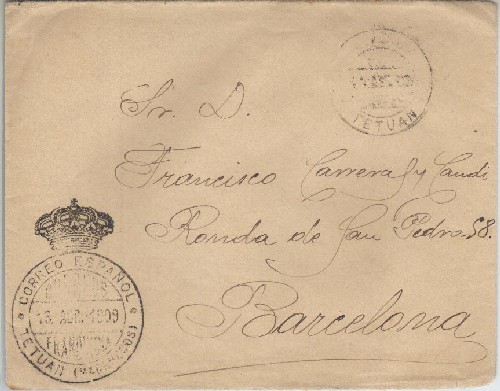 TETUAN
Sr. D.
Francisco Carreras y Candi
Ronda de San Pedro 58.
Barcelona
CORREO ESPAÑOL
ABR. 1909
FRANQUICIA
TETUAN (MARRUECOS)